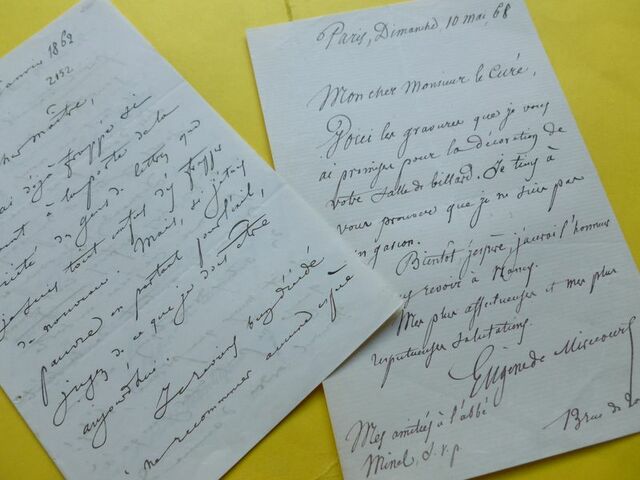 janvier 1862
2152
cher maître,
ai déjà frappé si
à la porte de la
des gens de lettres que
je suis tout confus d'y frapper
de nouveau. Mais, si j'étais
pauvre en partant pour l'exil,
jugez de ce que je dois être
aujourd'hui.
me recommander encore
Paris, Dimanche 10 mai, 68
Mon cher Monsieur le Curé,
Voici les gravures que je vous
ai promises pour la décoration de
votre salle de billard. Je tiens à
vous prouver que je ne suis pas
gascon.
Bientôt, j'espère, j'aurai l'honneur
revoir à Nancy.
Mes plus affectueuses et mes plus
respectueuses salutations.
Eugène de Mirecourt
Mes amitiés à l'abbé
Minel, s.v.p